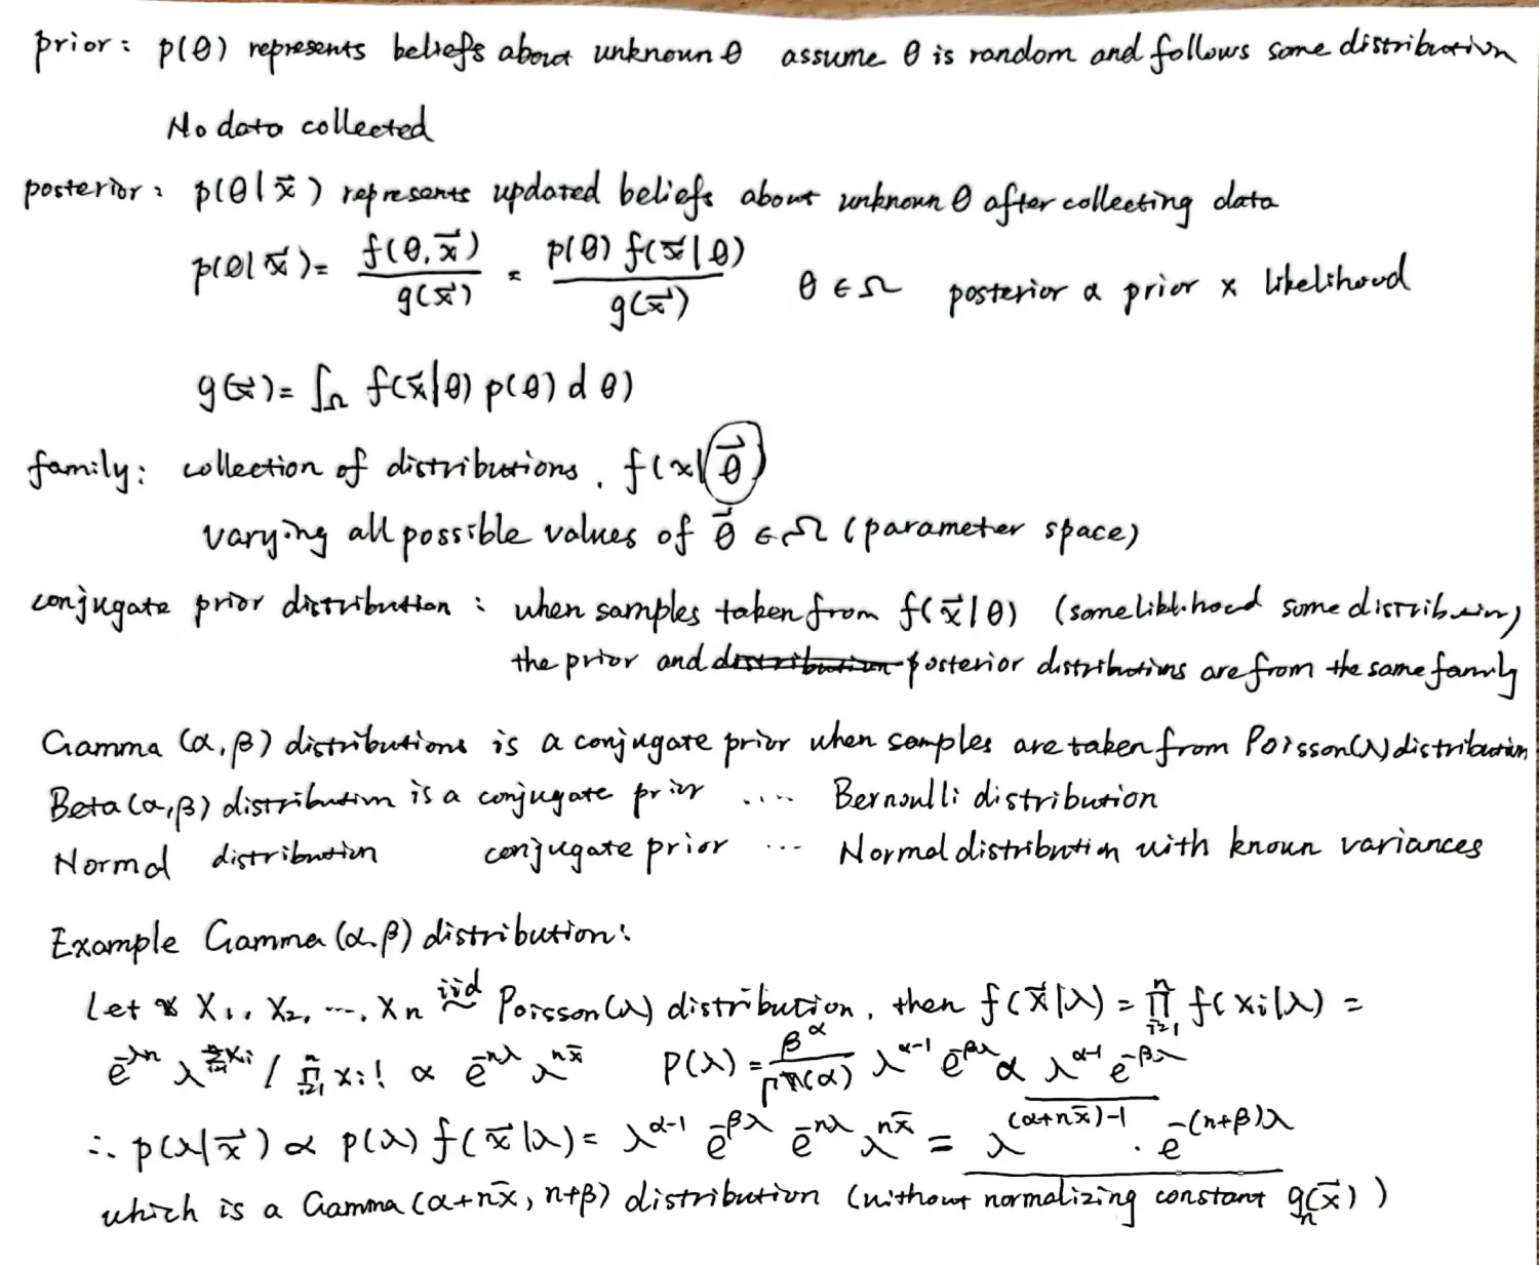 prior: p(θ) represents beliefs about unknown θ assume θ is random and follows some distribution
No data collected
posterior: p(θ|x⃗) represents updated beliefs about unknown θ after collecting data
p(θ|x⃗) = f(θ,x⃗) / g(x⃗) = p(θ) f(x⃗|θ) / g(x⃗) θ ∈ Ω posterior α prior x likelihood
g(x⃗) = ∫Ω f(x⃗|θ) p(θ) d θ)
family: collection of distributions. f(x|θ⃗)
varying all possible values of θ⃗ ∈ Ω (parameter space)
conjugate prior distribution: when samples taken from f(x⃗|θ) (some some distribution)
the prior and posterior distributions are from the same family
Gamma (α,β) distributions is a conjugate prior when samples are taken from Poisson(λ) distribution
Beta(α,β) distribution is a conjugate prior .... Bernoulli distribution
Normal distribution conjugate prior ... Normal distribution with known variances
Example Gamma (α.β) distribution:
Let X₁, X₂, ..., Xn iid~ Poisson(λ) distribution, then f(x⃗|λ) = ∏ᵢ₌₁ⁿ f(xi|λ) =
e^(-λn) λ^(Σxi) / ∏ᵢ₌₁ⁿ xi! α e^(-nλ) λ^(nx̄) p(λ) = β^α / Γ(α) λ^(α-1) e^(-βλ) α λ^(α-1) e^(-βλ)
∴ p(λ|x⃗) α p(λ) f(x⃗|λ) = λ^(α-1) e^(-βλ) e^(-nλ) λ^(nx̄) = λ^((α+nx̄)-1) · e^(-(n+β)λ)
which is a Gamma (α+nx̄, n+β) distribution (without normalizing constant gn(x⃗))